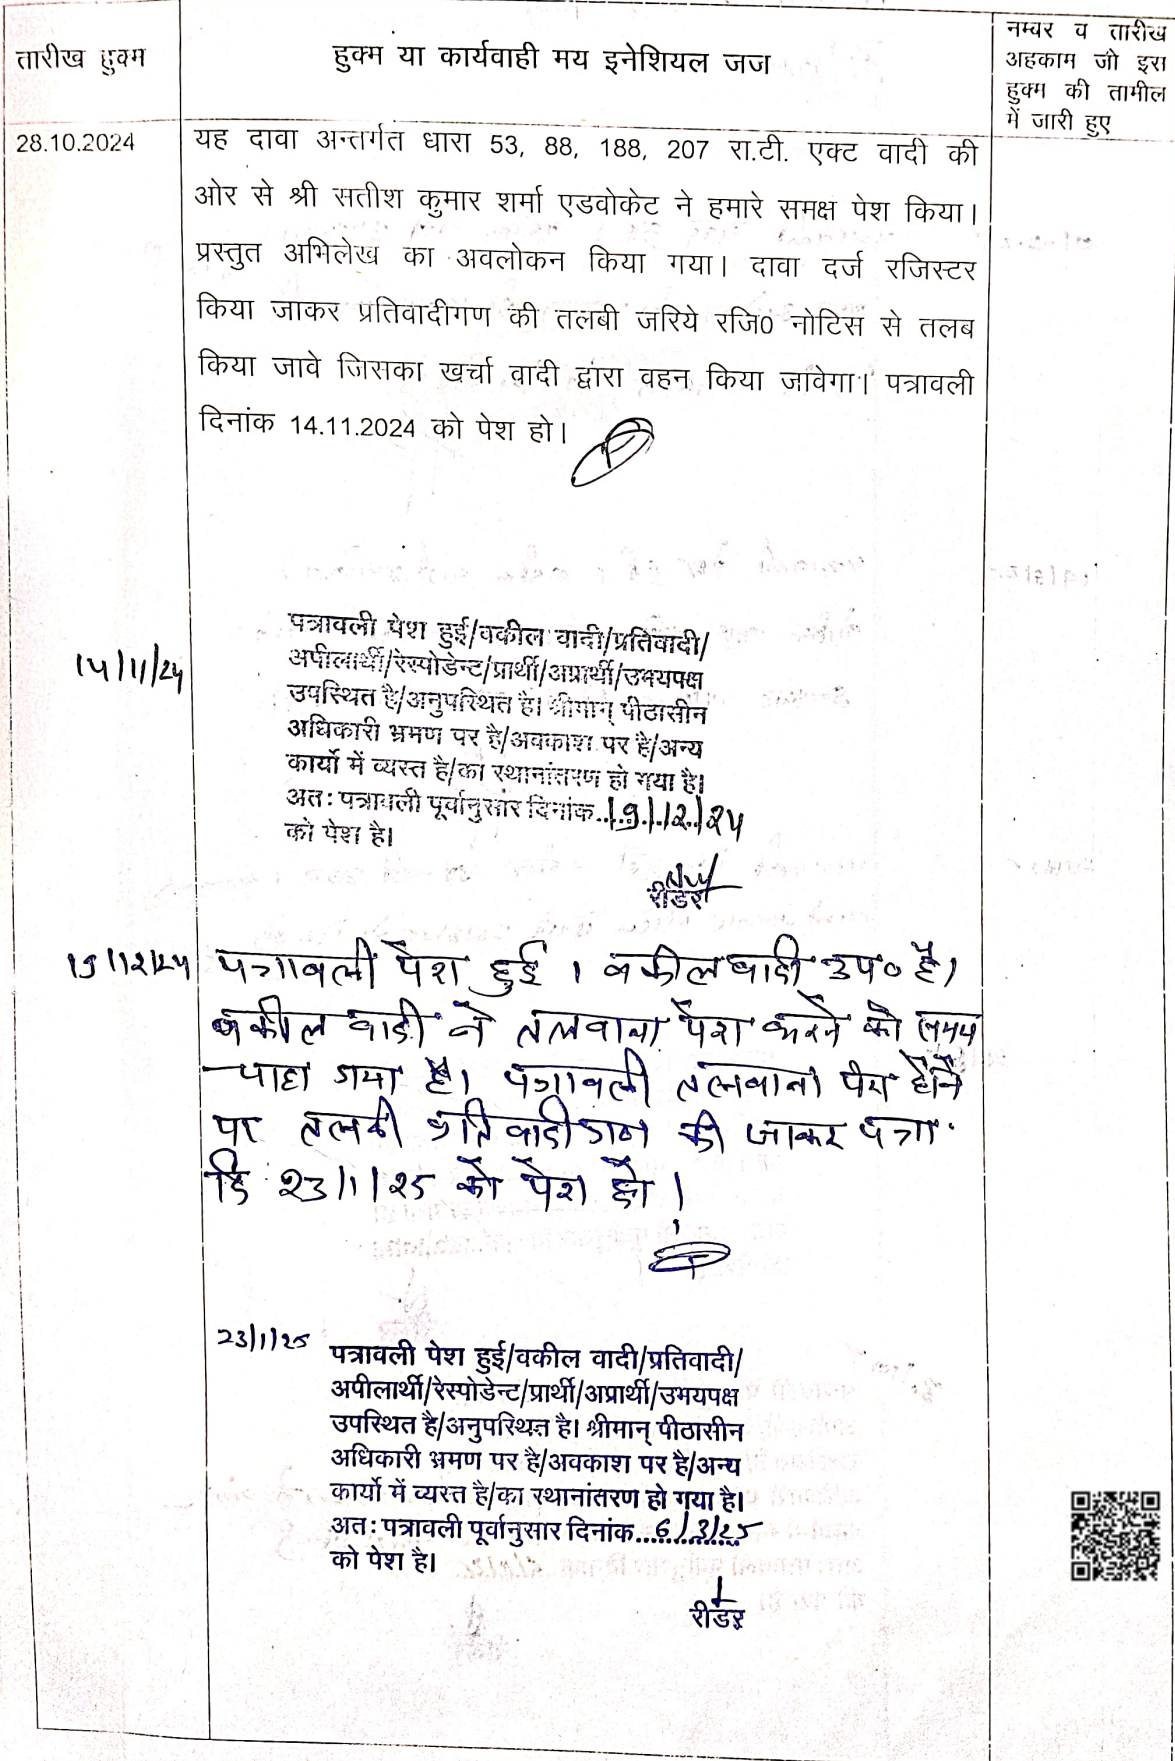 तारीख हुक्म
हुक्म या कार्यवाही मय इनेशियल जज
नम्बर व तारीख
अहकाम जो इस
हुक्म की तामील
में जारी हुए
28.10.2024
यह दावा अन्तर्गत धारा 53, 88, 188, 207 रा.टी. एक्ट वादी की
ओर से श्री सतीश कुमार शर्मा एडवोकेट ने हमारे समक्ष पेश किया।
प्रस्तुत अभिलेख का अवलोकन किया गया। दावा दर्ज रजिस्टर
किया जाकर प्रतिवादीगण की तलबी जरिये रजि0 नोटिस से तलब
किया जावे जिसका खर्चा वादी द्वारा वहन किया जावेगा। पत्रावली
दिनांक 14.11.2024 को पेश हो।
14/11/24
पत्रावली पेश हुई/वकील वादी/प्रतिवादी/
अपीलार्थी/रेस्पोडेन्ट/प्रार्थी/अप्रार्थी/उभयपक्ष
उपस्थित है/अनुपस्थित है। श्रीमान् पीठासीन
अधिकारी भ्रमण पर है/अवकाश पर है/अन्य
कार्यो में व्यस्त है/का स्थानांतरण हो गया है।
अतः पत्रावली पूर्वानुसार दिनांक..19/12/24
को पेश है।
रीडर
19/12/24
पत्रावली पेश हुई। वकील वादी उप० है।
वकील वादी ने तलवाना पेश करने को समय
चाहा गया है। पत्रावली तलवाना पेश होने
पर तलबी प्रतिवादीगण की जाकर पत्रा.
दि 23/1/25 को पेश हो।
23/1/25
पत्रावली पेश हुई/वकील वादी/प्रतिवादी/
अपीलार्थी/रेस्पोडेन्ट/प्रार्थी/अप्रार्थी/उभयपक्ष
उपस्थित है/अनुपस्थित है। श्रीमान् पीठासीन
अधिकारी भ्रमण पर है/अवकाश पर है/अन्य
कार्यो में व्यस्त है/का स्थानांतरण हो गया है।
अतः पत्रावली पूर्वानुसार दिनांक...6/3/25
को पेश है।
रीडर